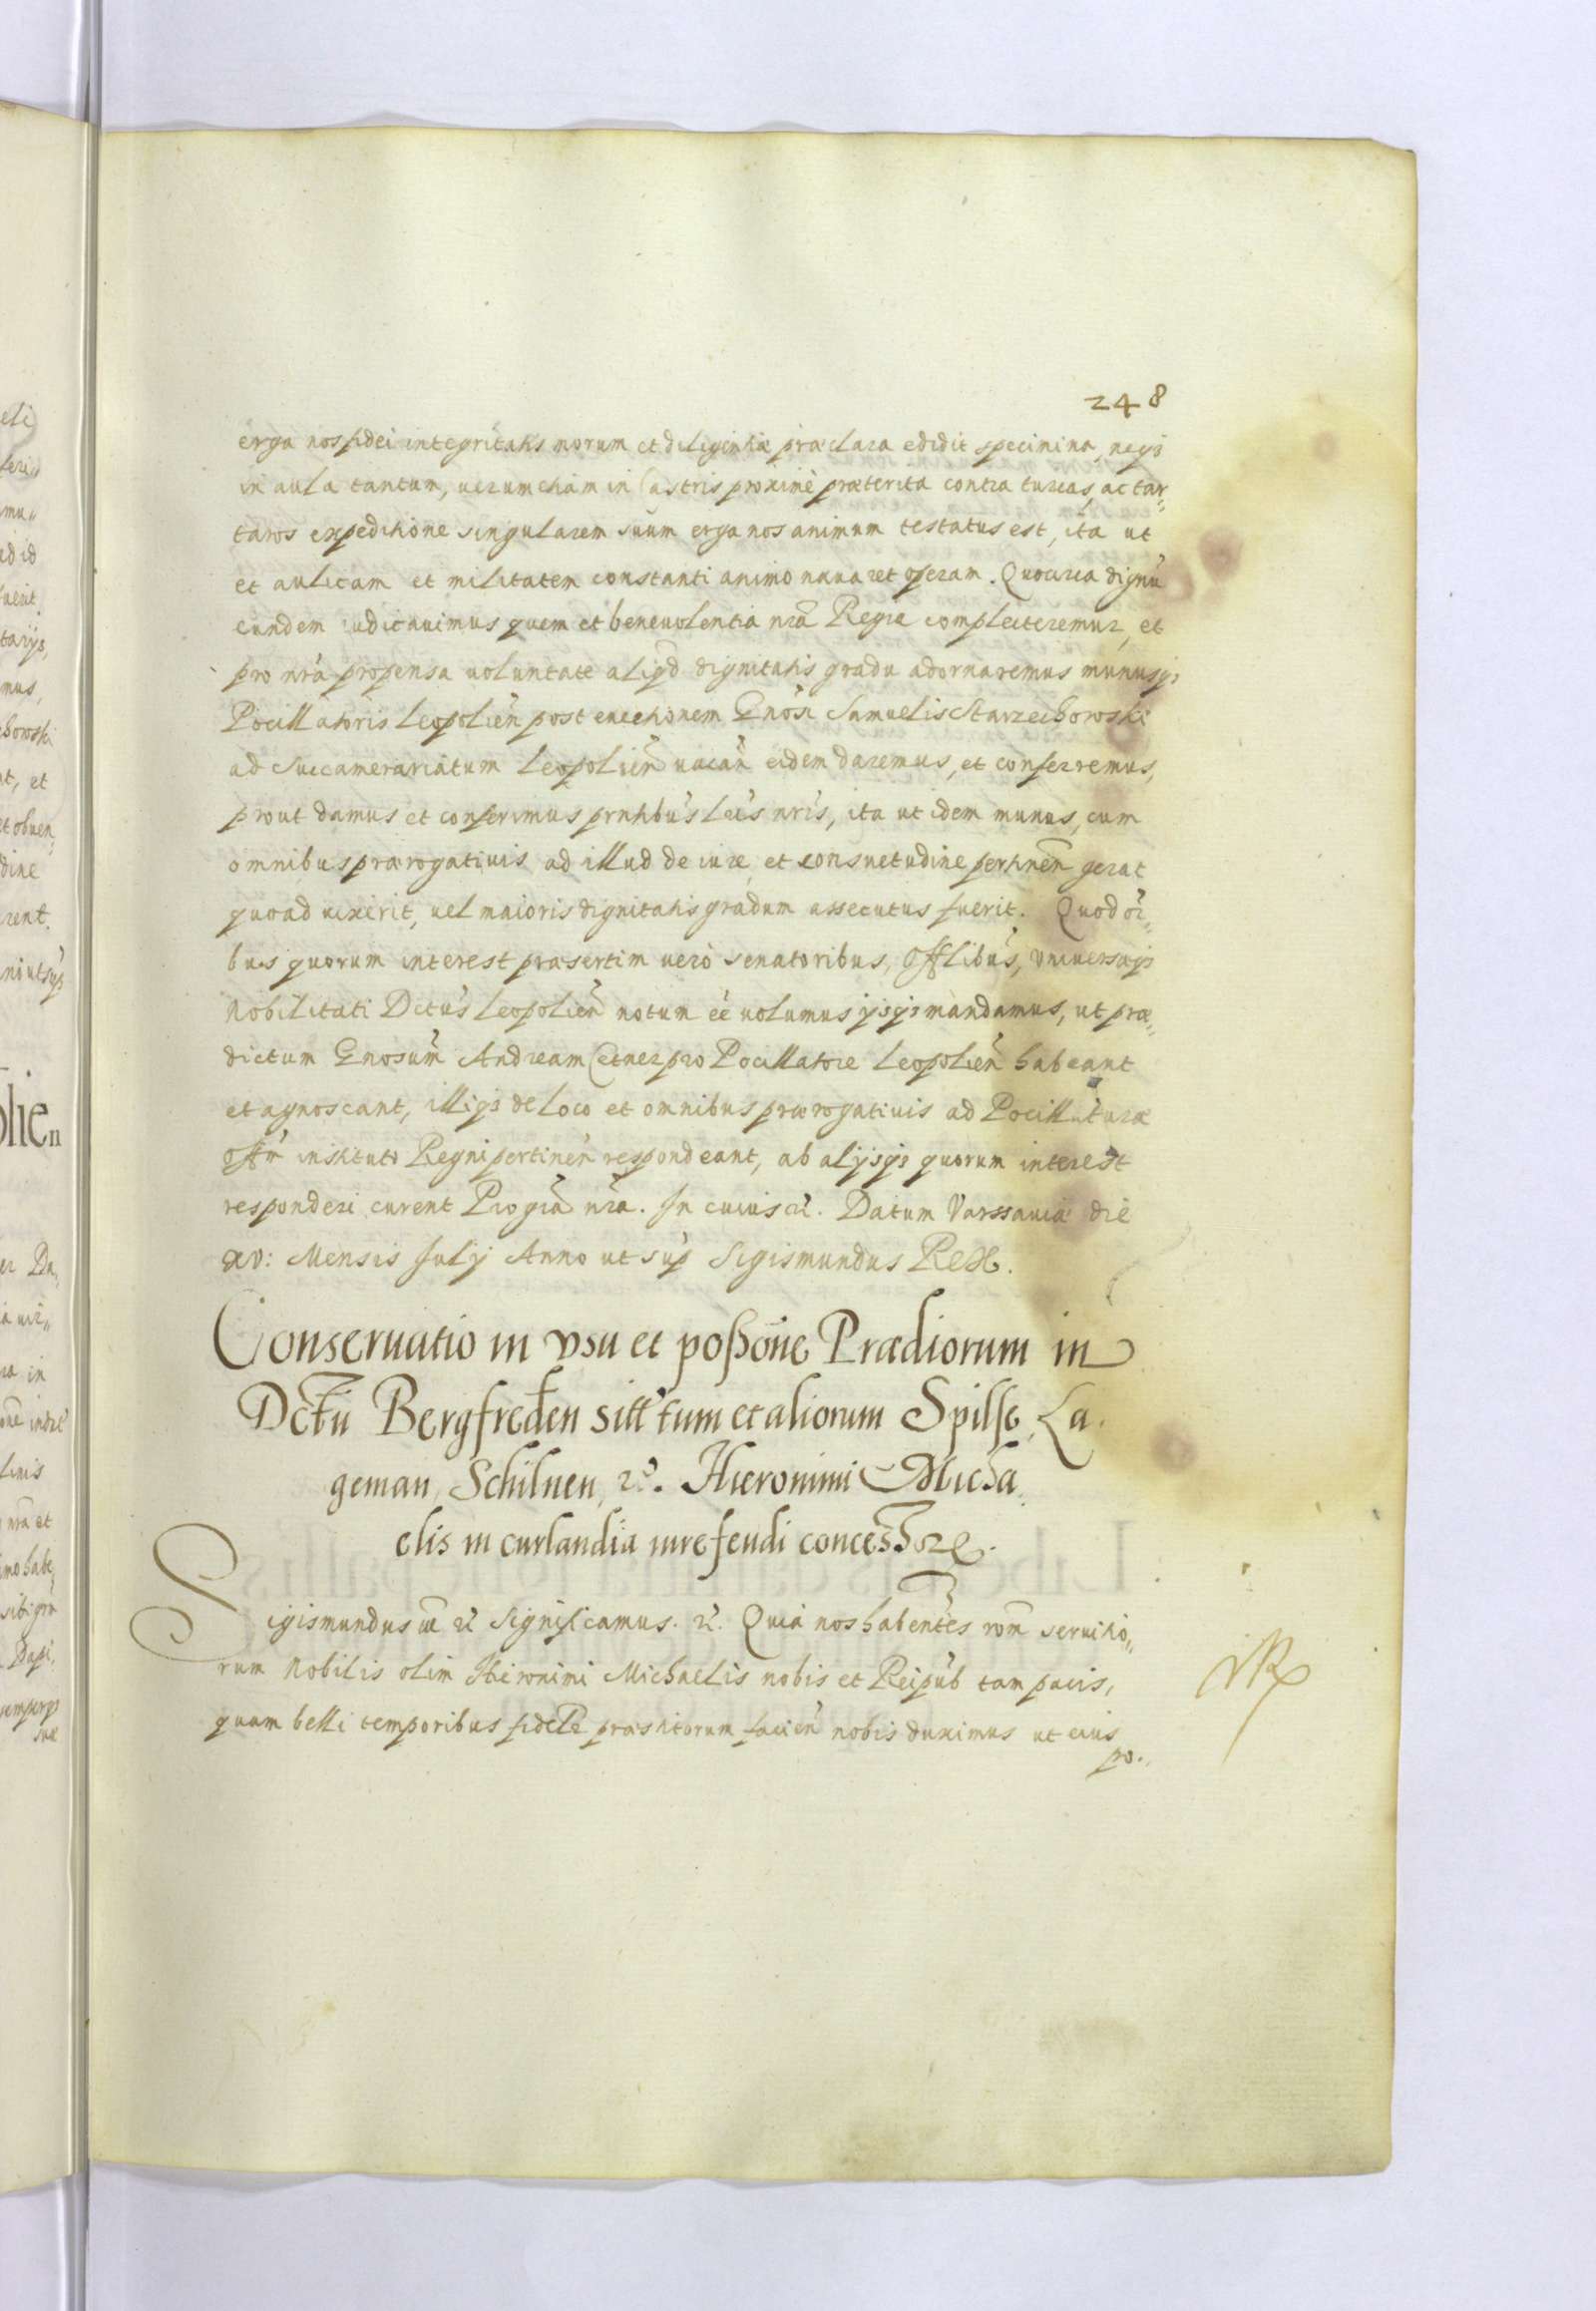 248
erga nos fidei integritatis morum et diligentiæ præclara edidit specimina, neqз
in aula tantum, uerum etiam in Castris proximè præterita contra turcas, ac tar„
taros expeditione singularem suum erga nos animum testatus est, ita ut
et aulicam et militarem constanti animo nauaret operam. Quocirca dignū
eundem iudicauimus quem et beneuolentia nrã Regia complecteremur, et
pro nrã propensa uoluntate aliqd dignitatis gradu adornaremus munusqз
Pocillatoris Leopolien̄ post euectionem Gnosi Samuelis Starzechowski
ad Succamerariatum Leopolien̄ uacan̄ eidem daremus, et conferremus,
prout damus et conferimus pntibus lris nris, ita ut idem munus, cum
omnibus prærogatiuis ad illud de iure et consuetudine pertinen̄ gerat
quoad uixerit, uel maioris dignitatis gradum assecutus fuerit. Quod oi„
bus quorum interest præsertim uerò senatoribus, Offlibus, vniuersaqз
Nobilitati Dctus Leopolien̄ notum eē uolumus ijsqз mandamus, ut præ„
dictum Gnosum Andream Cetner pro Pocillatore Leopolien̄ habeant
et agnoscant, illiqз de loco et omnibus prærogatiuis ad Pocillaturæ
offm instituto Regni pertinen̄ respondeant, ab alijsqз quorum interest
responderi curent Pro gra nrã. In cuius rei. Datum Varssauiæ die
xv: Mensis Julij Anno ut sup Sigismundus Rex.
Conseruatio in vsu et poßone Prædiorum in
Dctu Bergfreden sitt tum et aliorum Spilse, La.
geman, Schilnen, rc. Hieronimi Micha„
elis in curlandia iure feudi concessor.
Sigismundus rc Significamus. rc. Quia nos habentes rom seruitio„
rum Nobilis olim Hieronimi Michaelis nobis et Reipub tam pacis,
quam belli temporibus fideler præstitorum facien̄ nobis duximus ut eius
pro.